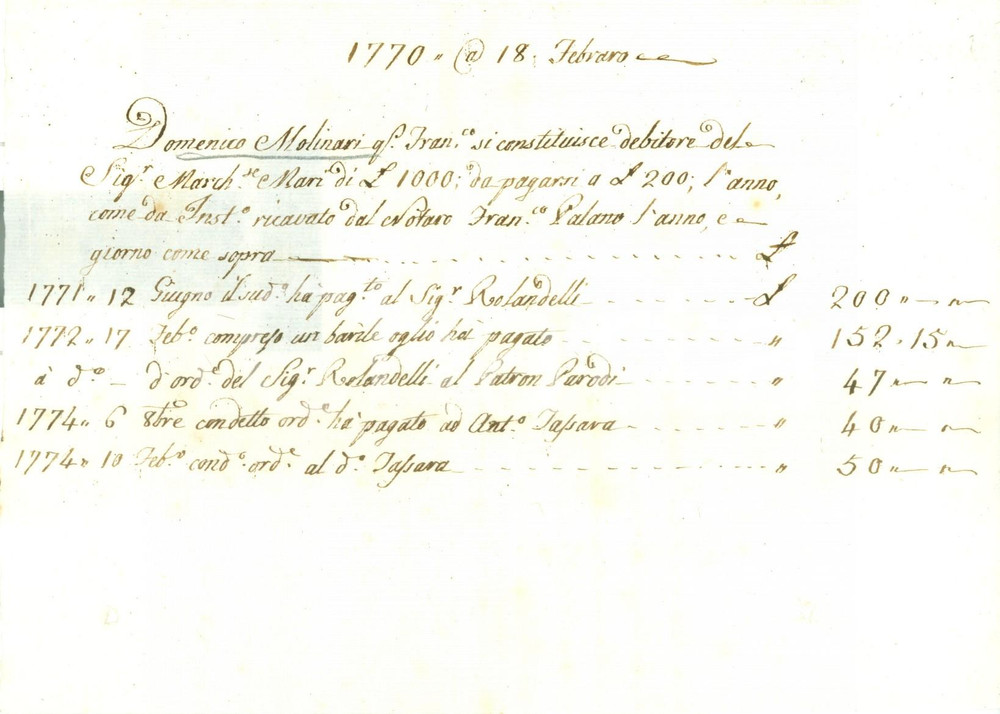 1770 „ @ 18. Febraro
Domenico Molinari qᵐ. Franᶜᵒ. si constituisce debitore del
Sigʳ. Marchˢᵉ Mariⁿⁱ di £ 1000; da pagarsi a £ 200; l'anno,
come da Instᵒ. ricavato dal Notaro Franᶜᵒ. Palano l'anno, e
giorno come sopra £
1771 „ 12 Giugno il sudᵒ. hà pagᵗᵒ al Sigʳ. Rolandelli £ 200 „ „
1772 „ 17 Febᵒ. compreso un barile oglio hà pagato „ 152 „ 15 „
à dᵒ d'ordᵉ. del Sigʳ. Rolandelli al Patron Parodi „ 47 „ „
1774 „ 6 8bre condetto ordᵉ. hà pagato ad Antᵒ. Tassara „ 40 „ „
1774 „ 10 Febᵒ. condᵒ. ordᵉ al dᵒ. Tassara „ 50 „ „